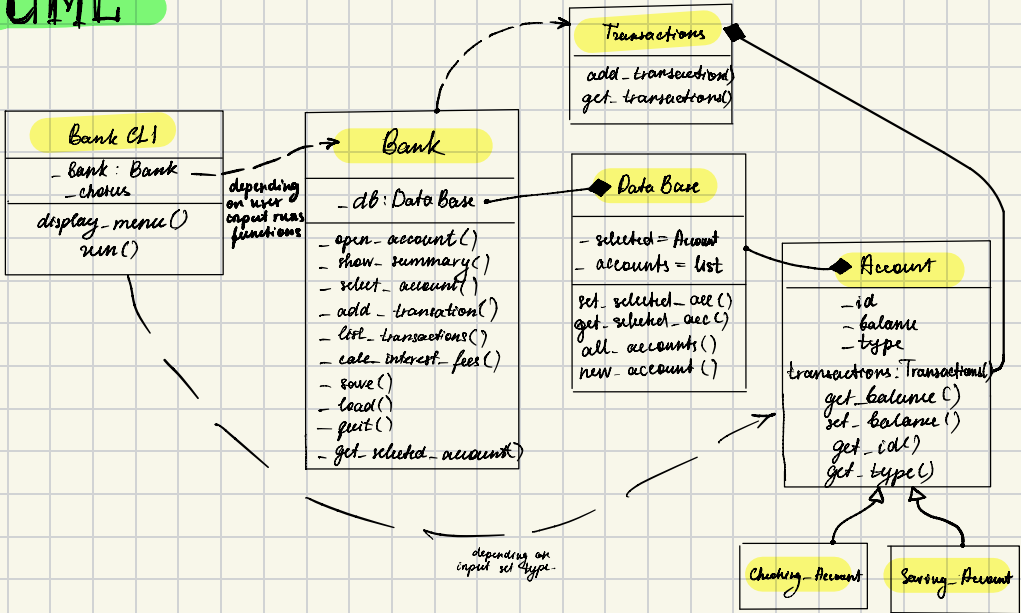 UML
Bank CLI
_ Bank : Bank
_ choices
display_menu()
run()
depending
on user
input runs
functions
Bank
_ db : Data Base
_ open_account()
_ show_summary()
_ select_account()
_ add_transation()
_ list_transactions()
_ calc_interest_fees()
_ save()
_ load()
_ quit()
_ get_selected_account()
Transactions
add_transaction()
get_transactions()
Data Base
_ selected = Account
_ accounts = list
set_selected_acc()
get_selected_acc()
all_accounts()
new_account()
Account
_ id
_ balance
_ type
transactions : Transactions()
get_balance()
set_balance()
get_id()
get_type()
depending on
input set type
Checking_Account
Saving_Account